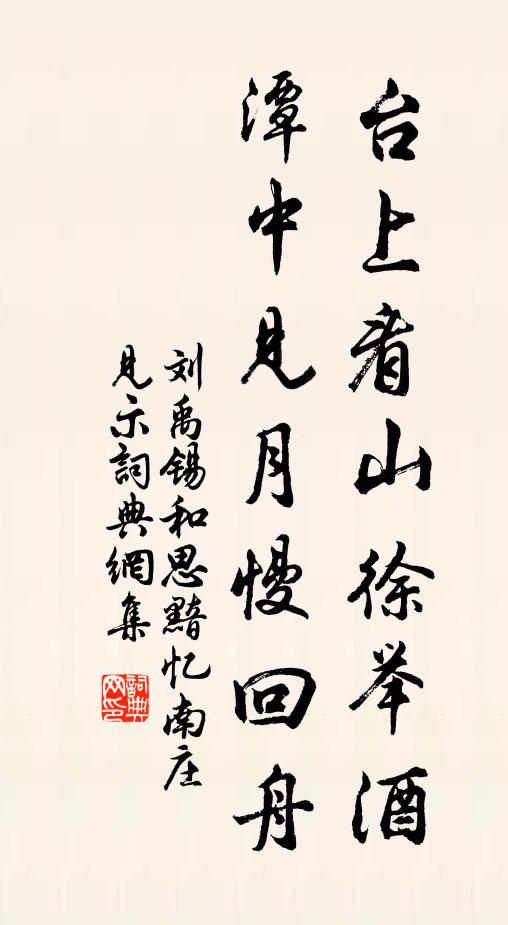 台上看山徐举酒
潭中见月慢回舟
刘禹锡和思黯忆南庄
见示詞典網集
詞典网印